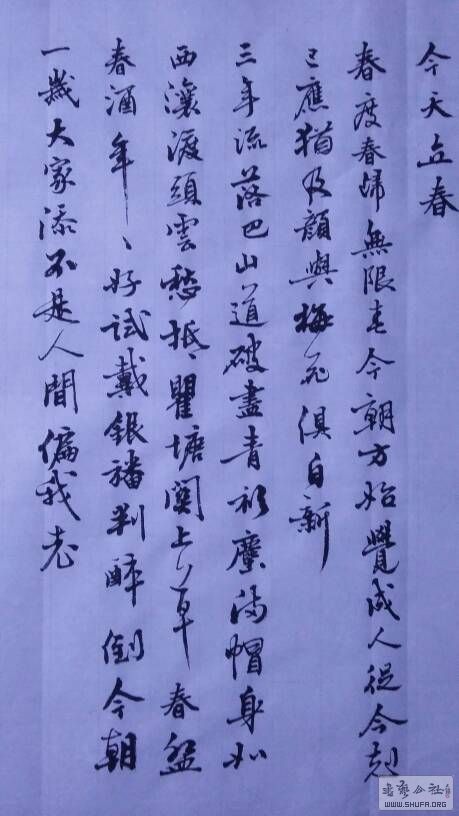 今天立春
春度春歸無限春今朝方始覺成人從今剋
己應猶及顏與梅花俱自新
三年流落巴山道破盡青衫塵滿帽身如
西瀼渡頭雲愁抵瞿塘關上草春盤
春酒年〻好試戴銀旛判醉倒今朝
一歲大家添不是人間偏我老
WWW.SHUFA.ORG